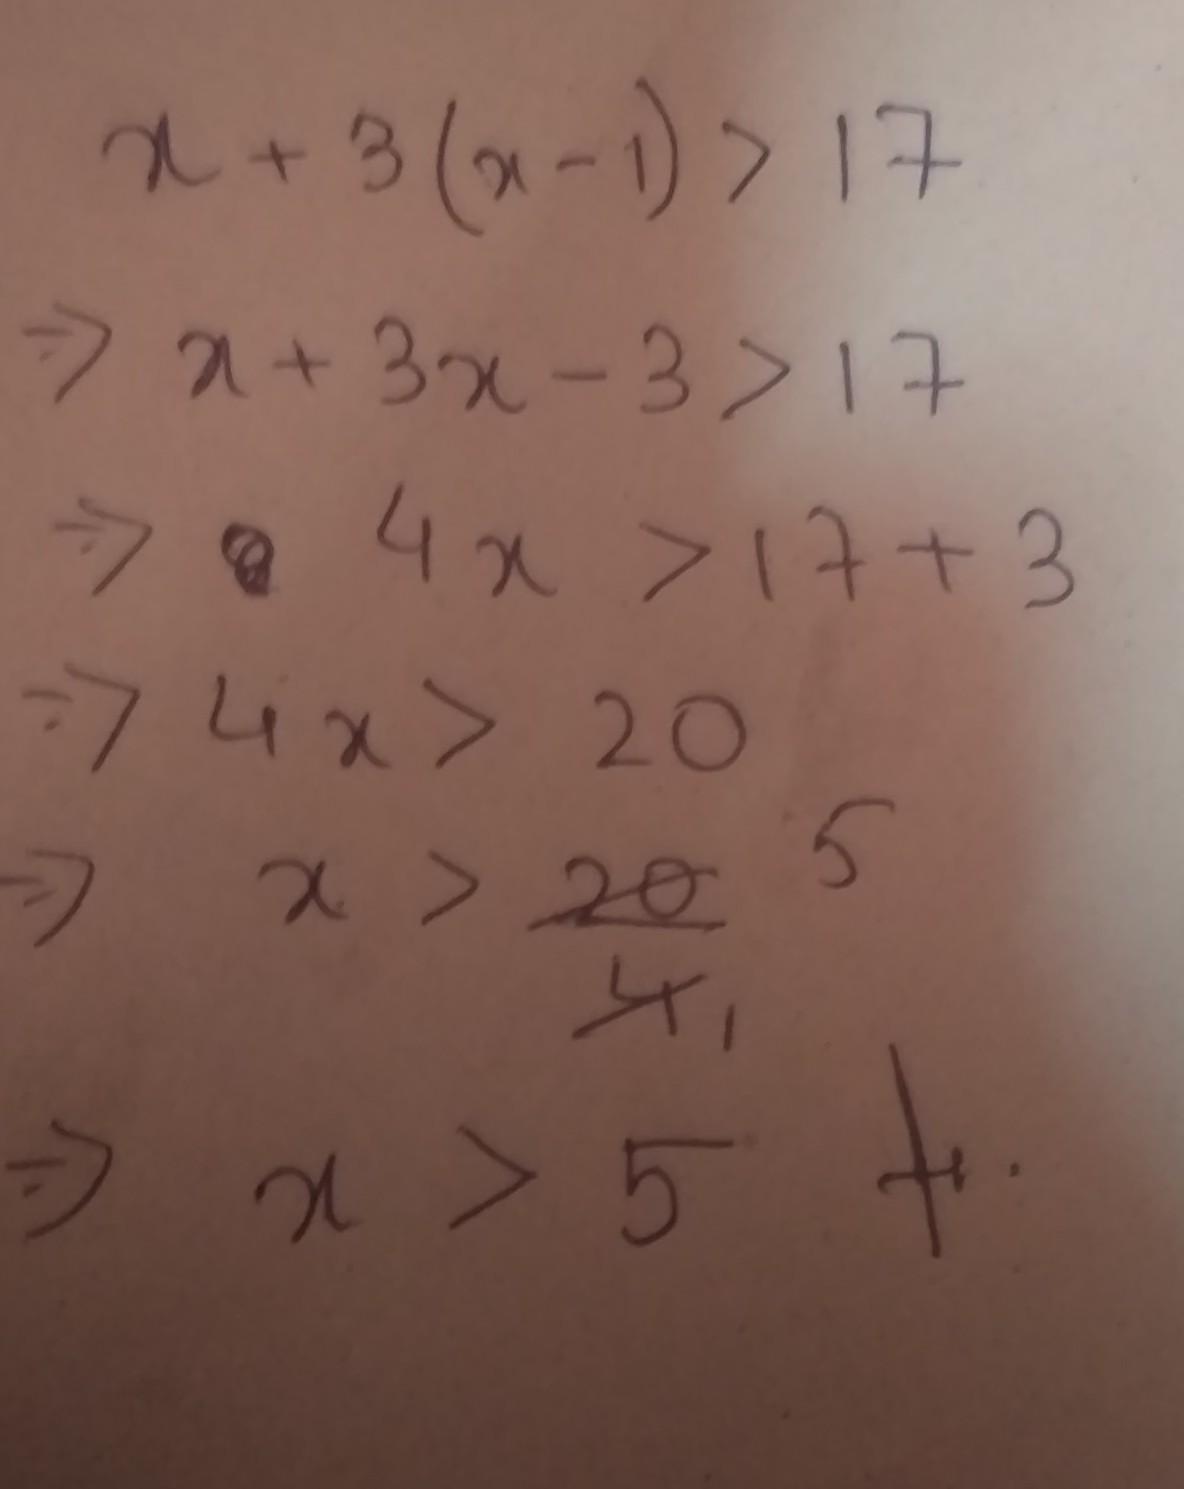 x + 3(x-1) > 17
⇒ x + 3x - 3 > 17
⇒ 4x > 17 + 3
⇒ 4x > 20
⇒ x > 20/4 5 1
⇒ x > 5